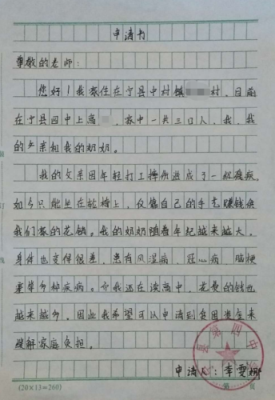 申请书
尊敬的老师:
您好!我家住在宁县中村镇村,目前
在宁县四中上高,家中一共三口人,我,我
的父亲和我的奶奶。
我的父亲因年轻打工摔伤造成了一级残疾,
如今只能坐在轮椅上,仅靠自己的手艺赚钱供
我们家的花销。我的奶奶随着年纪越来越大,
身体也变得很差,患有风湿病,冠心病,脑梗
塞等多种疾病。今我还在读高中,花费的钱也
越来越多,因此我希望可以申请到贫困生来
缓解家庭负担。
申请人:李雯
第四中
(20×13=260)
第 页